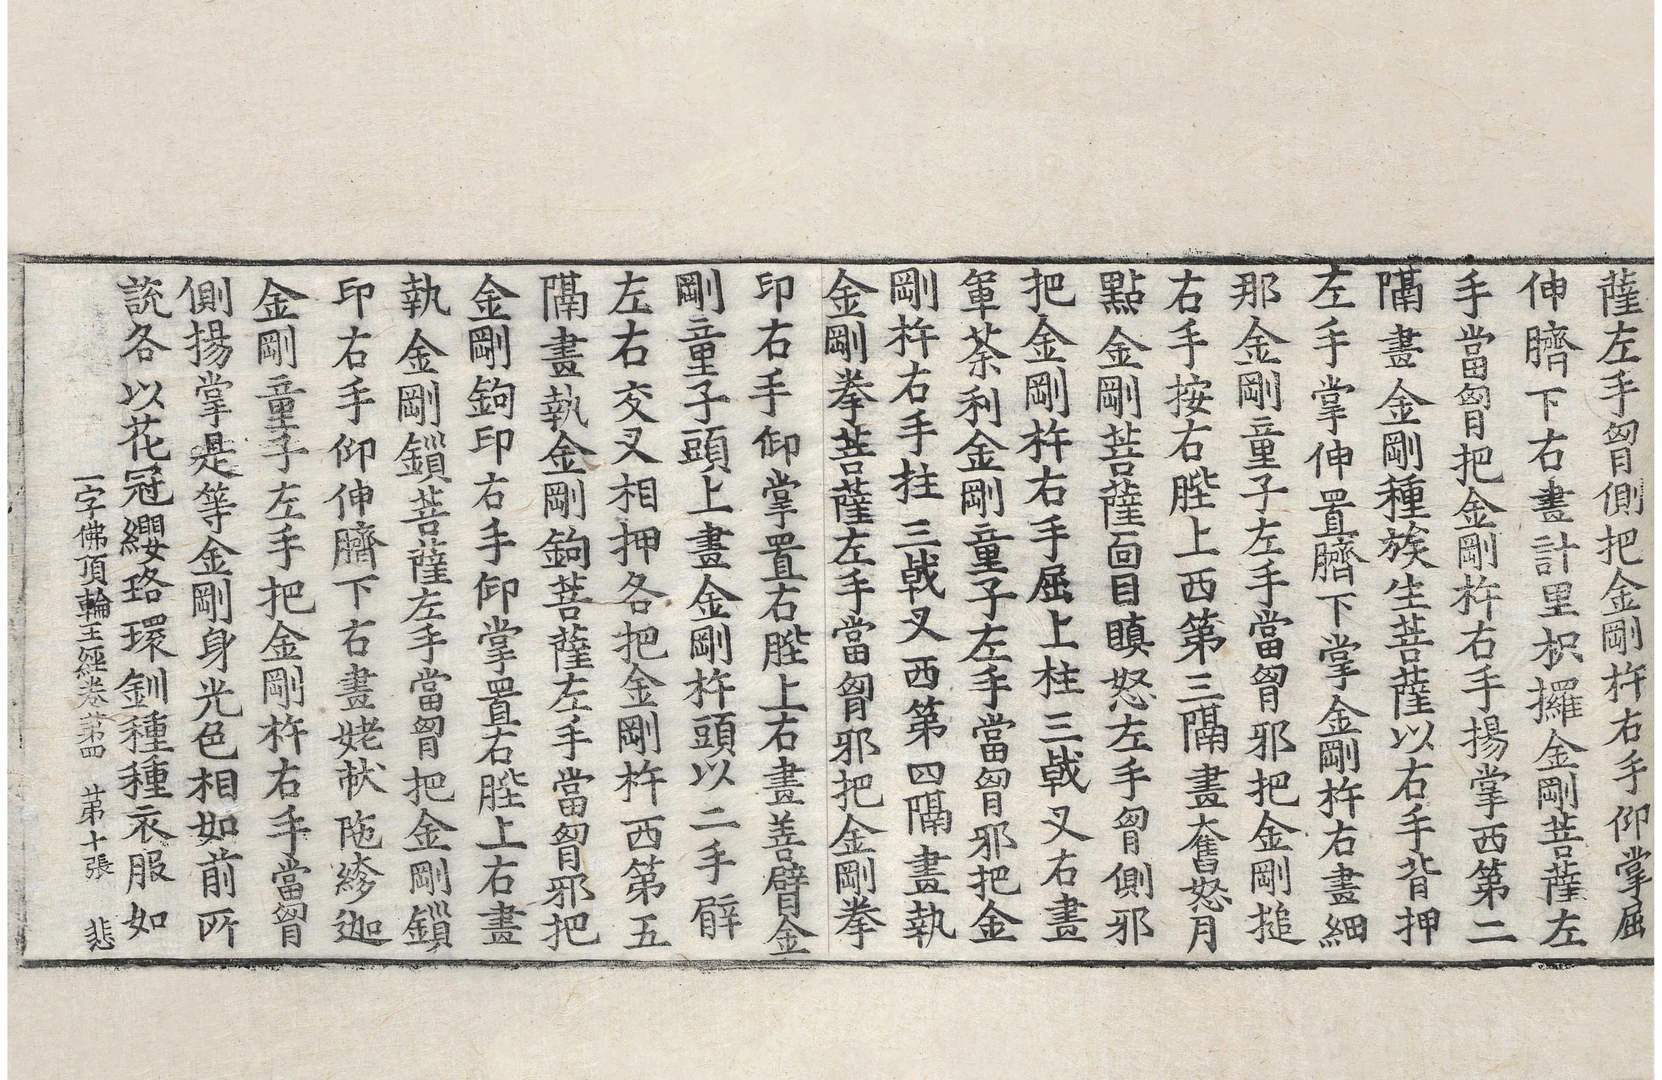 薩左手匈側把金剛杵右手仰掌屈
伸臍下右畫計里枳攞金剛菩薩左
手當匈把金剛杵右手揚掌西第二
隔畫金剛種族生菩薩以右手背押
左手掌伸置臍下掌金剛杵右畫細
那金剛童子左手當匈邪把金剛搥
右手按右䏶上西第三隔畫奮怒月
點金剛菩薩面目瞋怒左手匈側邪
把金剛杵右手屈上柱三戟叉右畫
軍荼利金剛童子左手當匈邪把金
剛杵右手拄三戟叉西第四隔畫執
金剛拳菩薩左手當匈邪把金剛拳
印右手仰掌置右䏶上右畫善臂金
剛童子頭上畫金剛杵頭以二手臂
左右交叉相押各把金剛杵西第五
隔畫執金剛鉤菩薩左手當匈邪把
金剛鉤印右手仰掌置右䏶上右畫
執金剛鎖菩薩左手當匈把金剛鎖
印右手仰伸臍下右畫姥㹤陁縿迦
金剛童子左手把金剛杵右手當匈
側揚掌是等金剛身光色相如前所
說各以花冠纓珞環釧種種衣服如
一字佛頂輪王經卷第四 第十張 悲